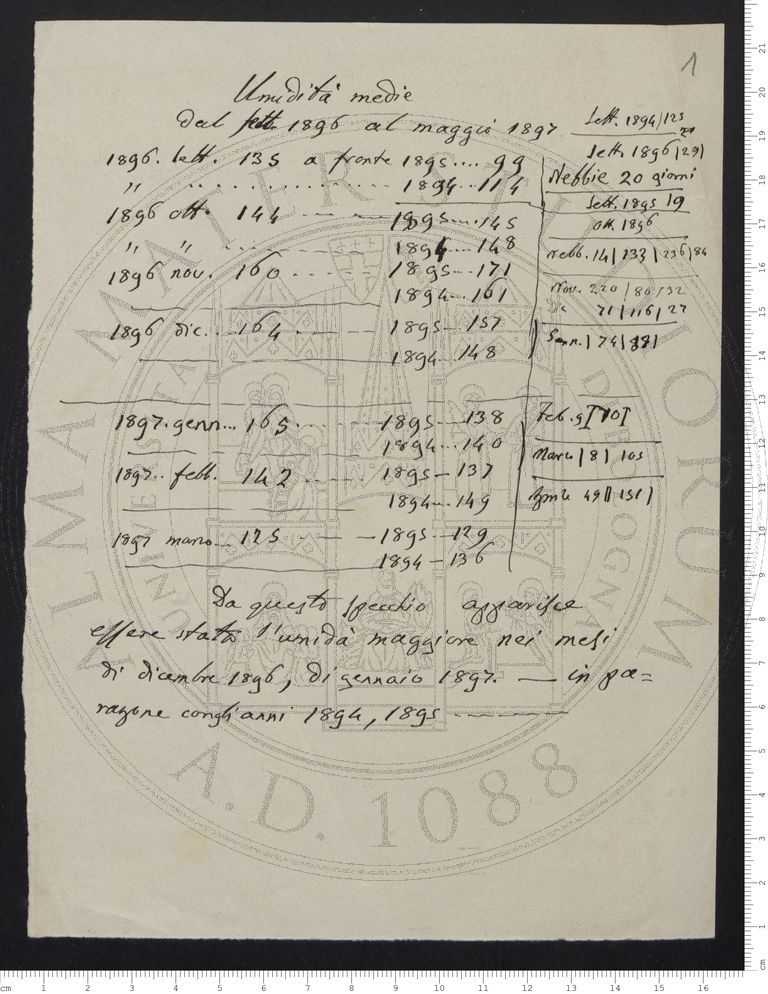 1
Umidità medie
Dal sett. 1896 al maggio 1897
1896. Sett. 135 a fronte 1895.... 99
" .............. 1894...114
1896 ott. 144 ---- 1895...145
" " .... 1894...148
1896 nov. 160 .... 1895...171
1894...161
1896 dic... 164 ---- 1895---157
1894--148
1897. genn... 165. ---- 1895--138
1894...140
1897.. febb. 142 ..... 1895--137
1894...149
1897 marzo... 125 ---- 1895--129
1894--136
Sett. 1894/125
Sett. 1896/29/
Nebbie 20 giorni
Sett. 1895 19
ott. 1896
Nebb. 14/ 233/ 236/84
Nov. 220/86/32
71/116/27
Genn./ 74/
Feb. 9
Marzo /8/ 105
Aprile 49
Da questo specchio apparisce
essere stata l'umidà maggiore nei mesi
di dicembre 1896, di gennaio 1897. — in pa=
ragone congli anni 1894, 1895 --------
ALMA MATER STUDIORUM
A.D. 1088